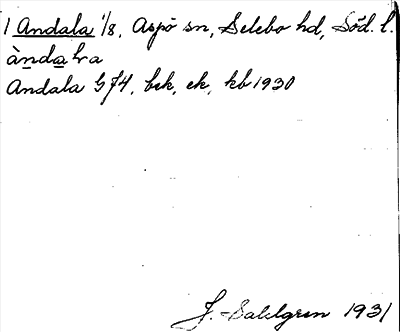 1 Andala 1/8, Aspö sn, Selebo hd, Söd. l.
àndala
Andala GJ4, bek, ek, kb 1930
J. Sahlgren 1931